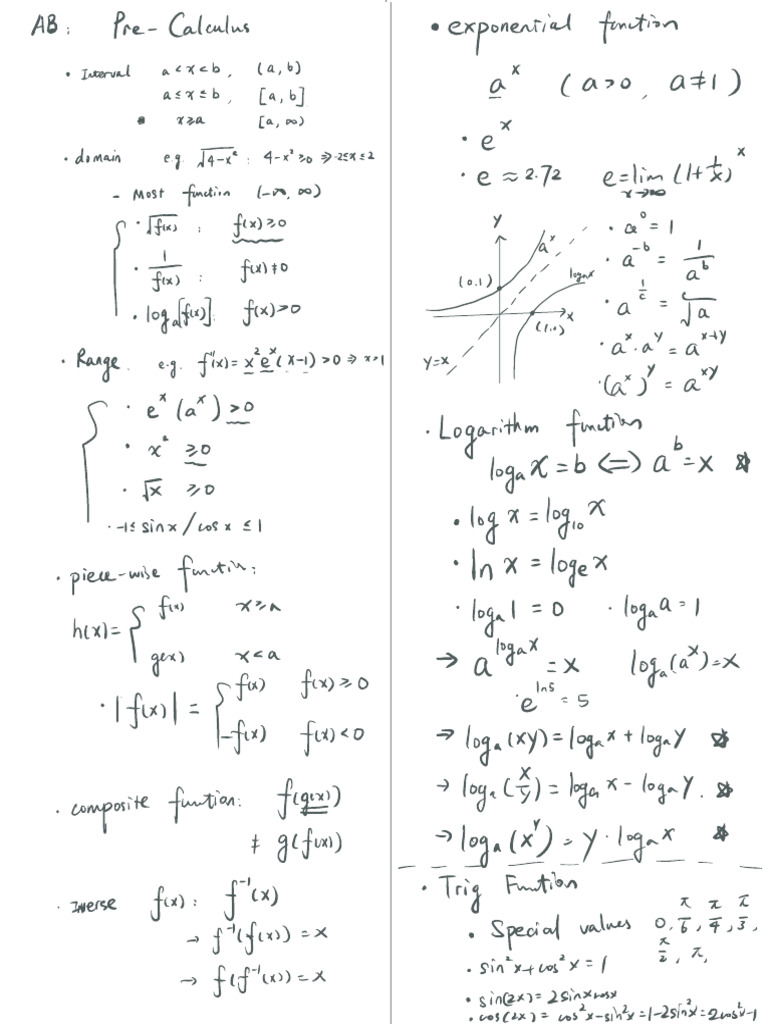 AB: Pre-Calculus
• Interval a<x<b, (a, b)
a≤x≤b, [a, b]
• x≥a [a, ∞)
• domain e.g. √(4-x²) : 4-x²≥0 ⇒ -2≤x≤2
- Most function (-∞, ∞)
• √f(x) : f(x)≥0
• 1/f(x) : f(x)≠0
• logₐ[f(x)]: f(x)>0
• Range e.g. f''(x)=x²eˣ(x-1)>0 ⇒ x>1
• eˣ (aˣ) >0
• x² ≥0
• √x ≥0
• -1≤ sinx/cosx ≤1
• piece-wise function:
h(x)= { f(x) x≥a
g(x) x<a
• |f(x)| = { f(x) f(x)≥0
-f(x) f(x)<0
• composite function: f(g(x))
≠ g(f(x))
• Inverse f(x): f⁻¹(x)
→ f⁻¹(f(x))=x
→ f(f⁻¹(x))=x
• exponential function
aˣ (a>0, a≠1)
• eˣ
• e≈2.72 e=lim x→∞ (1+1/x)ˣ
y
aˣ
(0,1)
logₐx
x
(1,0)
y=x
• a⁰=1
• a⁻ᵇ = 1/aᵇ
• a^(1/c) = ᶜ√a
• aˣ·aʸ=aˣ⁺ʸ
• (aˣ)ʸ=aˣʸ
• Logarithm function
logₐx=b ⟺ aᵇ=x ☆
• log x = log₁₀x
• ln x = logₑx
• logₐ1=0 • logₐa=1
→ a^(logₐx) = x logₐ(aˣ)=x
• e^(ln5) = 5
→ logₐ(xy)=logₐx+logₐy ☆
→ logₐ(x/y)=logₐx-logₐy. ☆
→ logₐ(xʸ)=y·logₐx ☆
• Trig Function
• Special values 0, π/6, π/4, π/3,
π/2, π,
• sin²x+cos²x=1
• sin(2x)=2sinxcosx
• cos(2x)=cos²x-sin²x=1-2sin²x=2cos²x-1